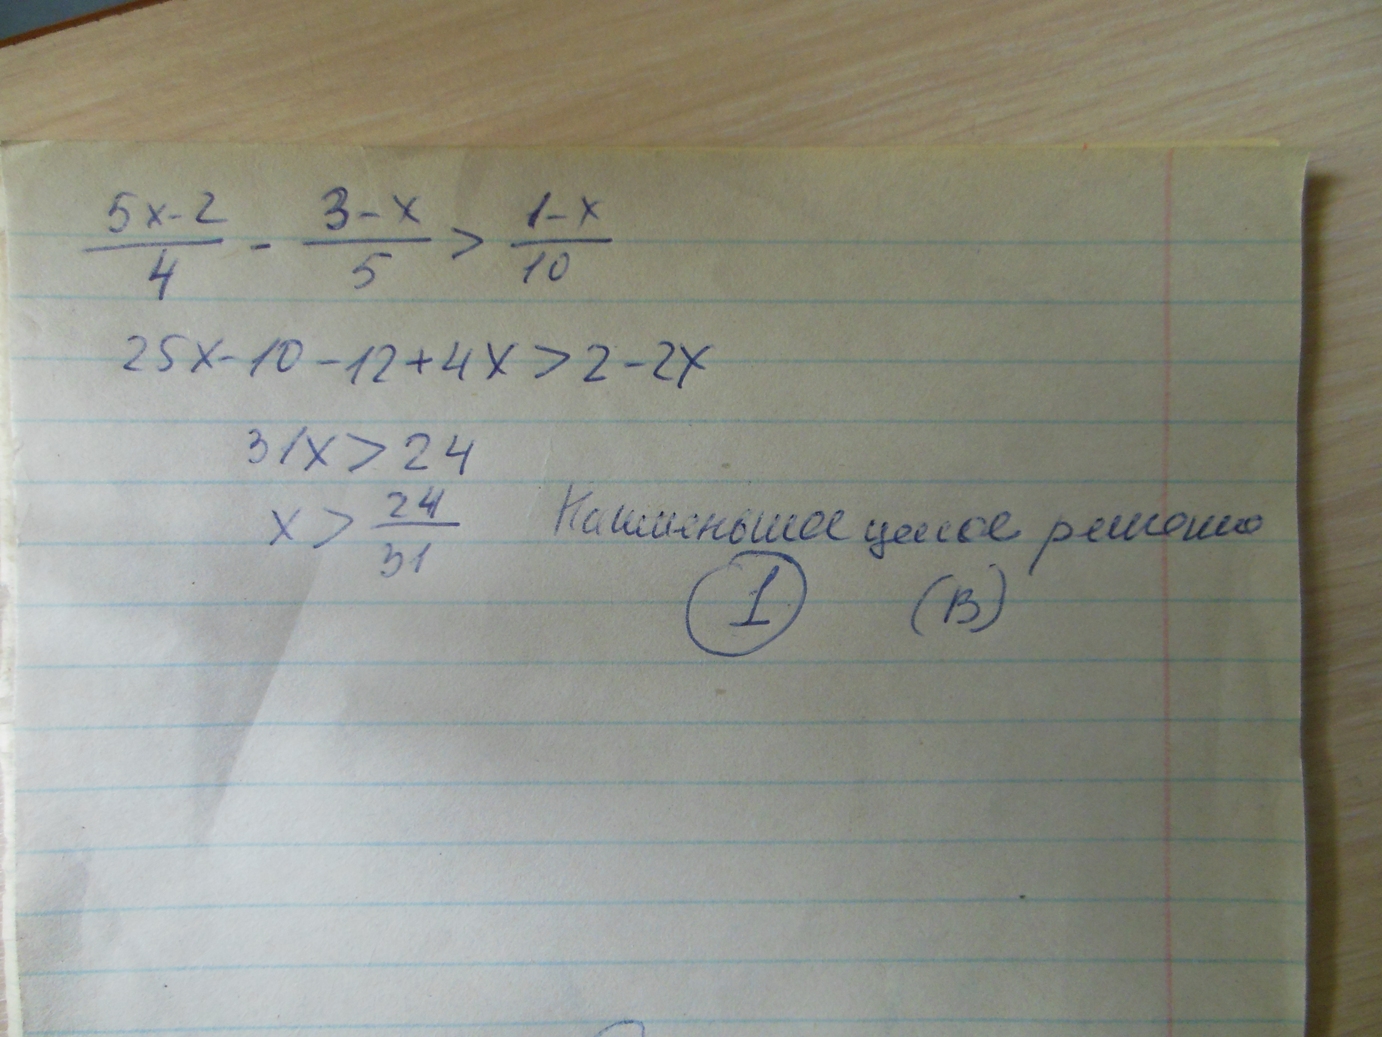 (5x-2)/4 - (3-x)/5 > (1-x)/10
25x-10-12+4x>2-2x
31x>24
x > 24/31 Наименьшее целое решение
1 (В)